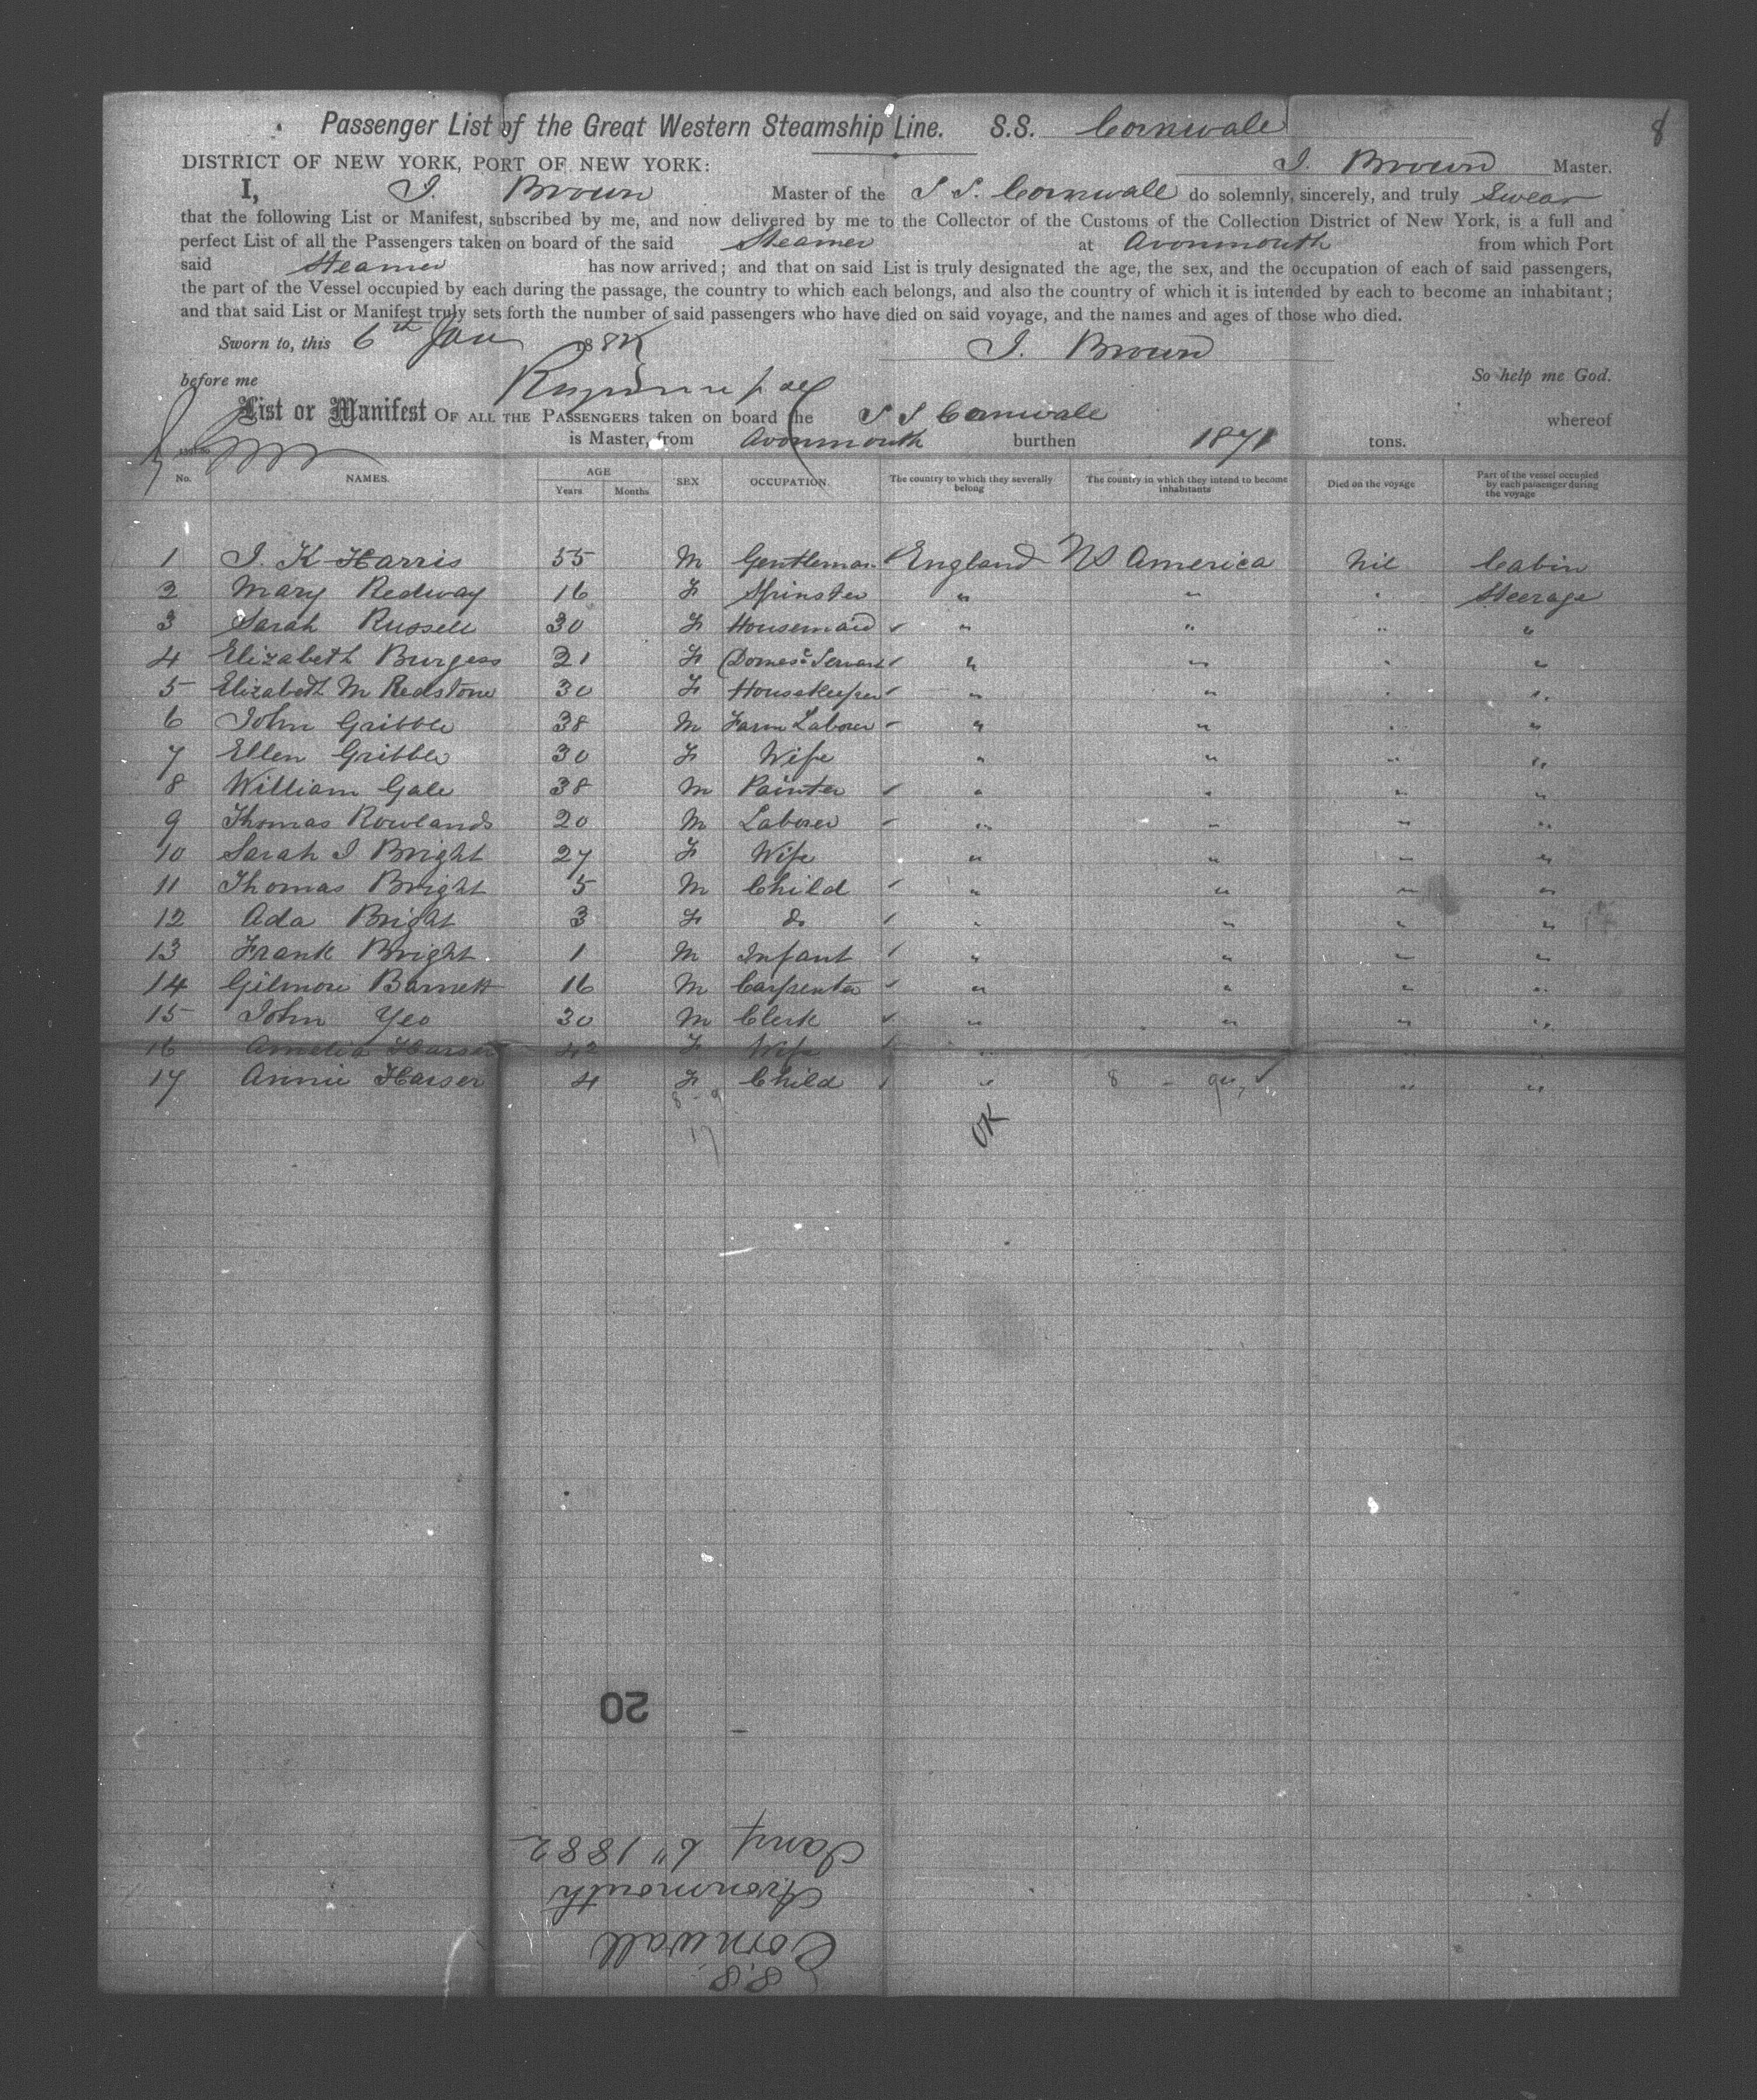 Passenger List of the Great Western Steamship Line. S.S. Cornwall 8
DISTRICT OF NEW YORK, PORT OF NEW YORK: J. Brown Master.
I, J. Brown Master of the S S. Cornwall do solemnly, sincerely, and truly swear
that the following List or Manifest, subscribed by me, and now delivered by me to the Collector of the Customs of the Collection District of New York, is a full and
perfect List of all the Passengers taken on board of the said Steamer at Avonmouth from which Port
said Steamer has now arrived; and that on said List is truly designated the age, the sex, and the occupation of each of said passengers,
the part of the Vessel occupied by each during the passage, the country to which each belongs, and also the country of which it is intended by each to become an inhabitant;
and that said List or Manifest truly sets forth the number of said passengers who have died on said voyage, and the names and ages of those who died.
Sworn to, this 6th Jan 1882 J. Brown
before me So help me God.
List or Manifest OF ALL THE PASSENGERS taken on board the S S Cornwall whereof
is Master, from Avonmouth burthen 1871 tons.
No. NAMES. AGE Years Months SEX OCCUPATION. The country to which they severally belong The country in which they intend to become inhabitants Died on the voyage Part of the vessel occupied by each passenger during the voyage
1 J. K Harris 55 M Gentleman England US America Nil Cabin
2 Mary Redway 16 F Spinster " " " Steerage
3 Sarah Russell 30 F Housemaid ✓ " " " "
4 Elizabeth Burgess 21 F Domesc Servant ✓ " " " "
5 Elizabeth M Redstone 30 F Housekeeper ✓ " " " "
6 John Gribble 38 M Farm Laborer ✓ " " " "
7 Ellen Gribble 30 F Wife " " " "
8 William Gale 38 M Painter ✓ " " " "
9 Thomas Rowlands 20 M Laborer ✓ " " " "
10 Sarah J Bright 27 F Wife " " " "
11 Thomas Bright 5 M Child ✓ " " " "
12 Ada Bright 3 F Do ✓ " " " "
13 Frank Bright 1 M Infant ✓ " " " "
14 Gilmore Barnett 16 M Carpenter ✓ " " " "
15 John Yeo 30 M Clerk ✓ " " " "
16 Amelia Harser 42 F Wife ✓ " " "
17 Annie Harser 4 F Child ✓ " 8 - 9 ✓ " "
8 - 9
17
OK
20
Jany 6" 1882
Avonmouth
Cornwall
S.S.